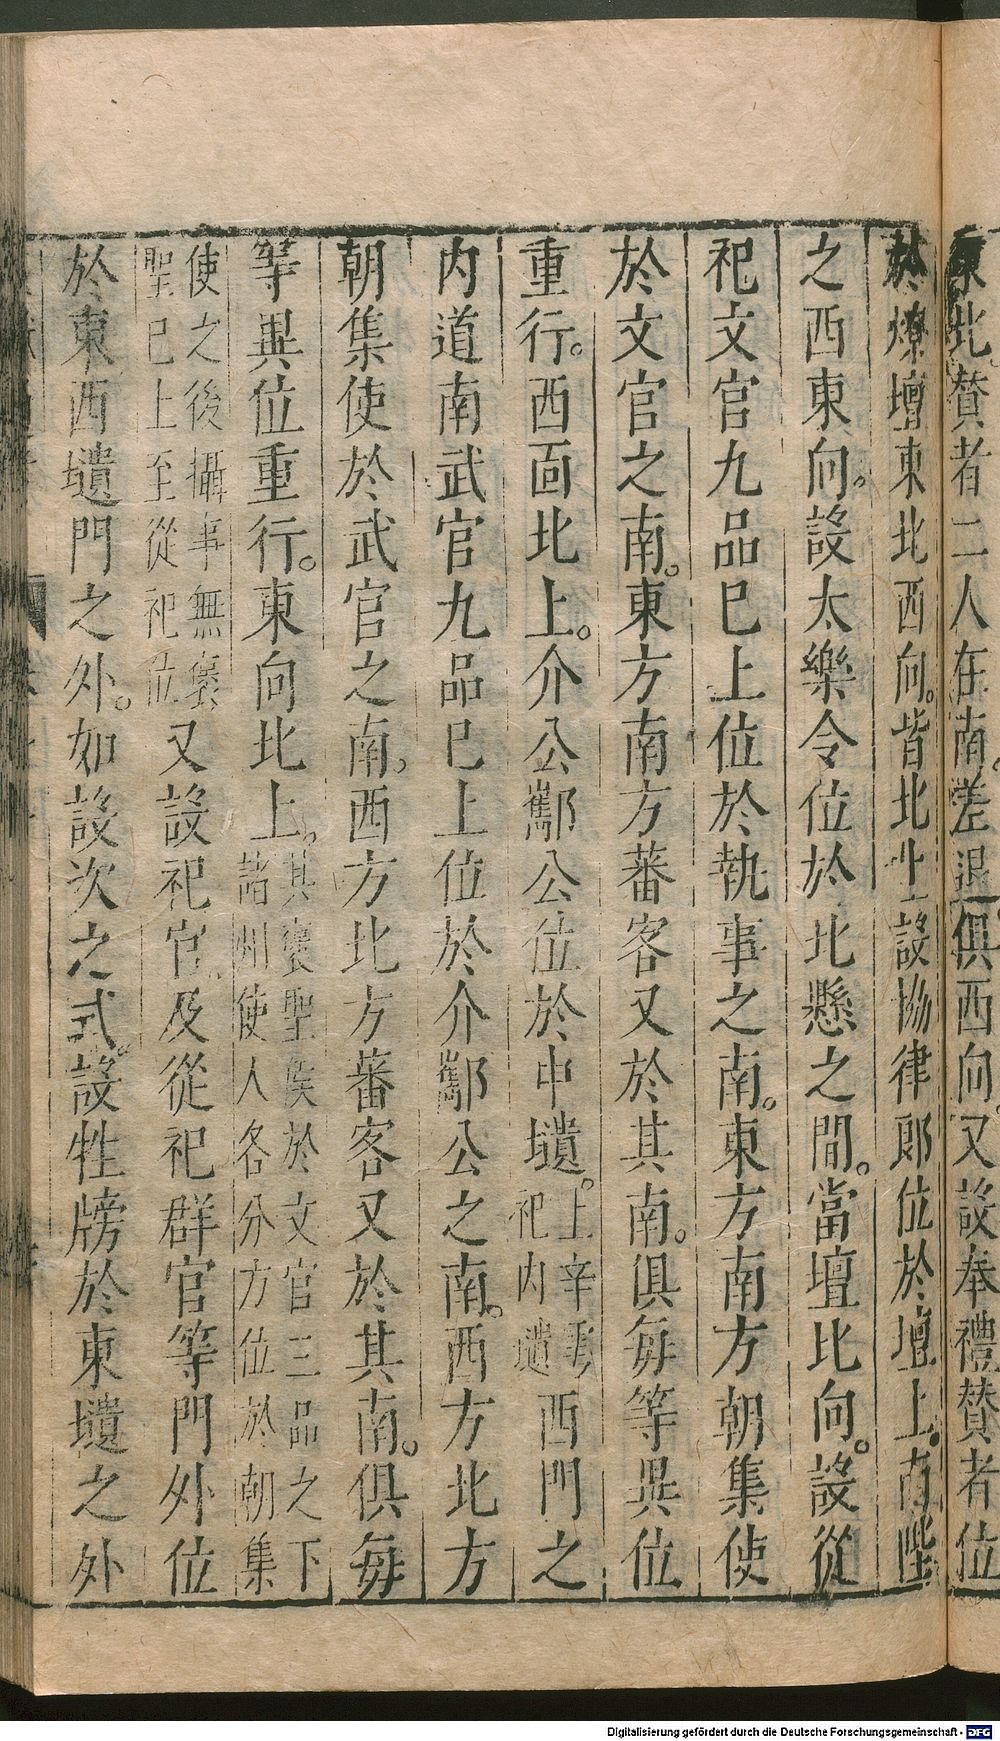 東北。贊者二人在南。差退俱西向。又設奉禮贊者位
於燎壇東北西向。皆北上設協律郎位於壇上。南陛
之西東向。設太樂令位於北懸之間。當壇北向。設從
祀文官九品已上位於執事之南。東方南方朝集使
於文官之南。東方南方蕃客又於其南。俱每等異位
重行。西面北上。介公酅公位於中壝。上辛雩祀内壝西門之
内道南武官九品已上位於介酅公之南。西方北方
朝集使於武官之南。西方北方蕃客又於其南。俱每
等異位重行。東向北上。其襃聖侯於文官三品之下諸州使人各分方位於朝集
使之後攝事無褒聖已上至從祀位又設祀官及從祀群官等門外位
於東西壝門之外。如設次之式。設牲牓於東壝之外
Digitalisierung gefördert durch die Deutsche Forschungsgemeinschaft - DFG